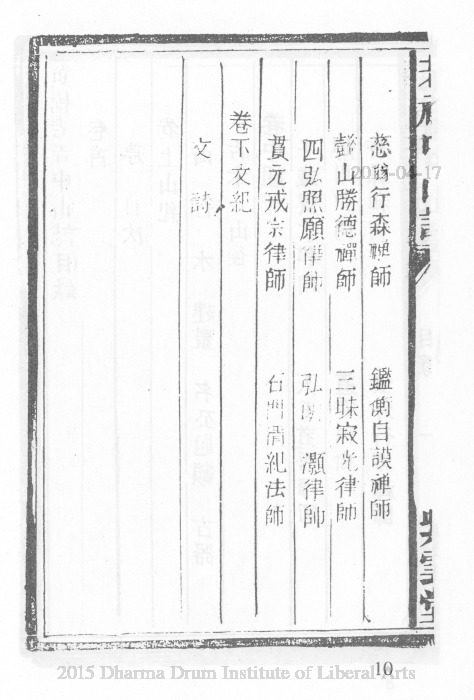 慈翁行森禪師 鑑衡自謨禪師
彭山勝德禪師 三昧寂光律師
四弘照願律師 弘 灝律師
貫元戒宗律師 清紀法師
卷下文紀
文 詩
紫雲堂
10
2015 Dharma Drum Institute of Liberal Arts